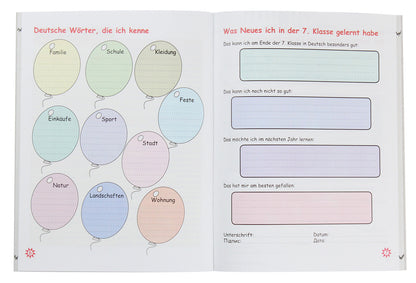 Deutsche Wörter, die ich kenne
Familie
Schule
Kleidung
Feste
Einkäufe
Sport
Stadt
Natur
Landschaften
Wohnung
Was Neues ich in der 7. Klasse gelernt habe
Das kann ich am Ende der 7. Klasse in Deutsch besonders gut:
Das kann ich noch nicht so gut:
Das möchte ich im nächsten Jahr lernen:
Das hat mir am besten gefallen:
Unterschrift: Datum: